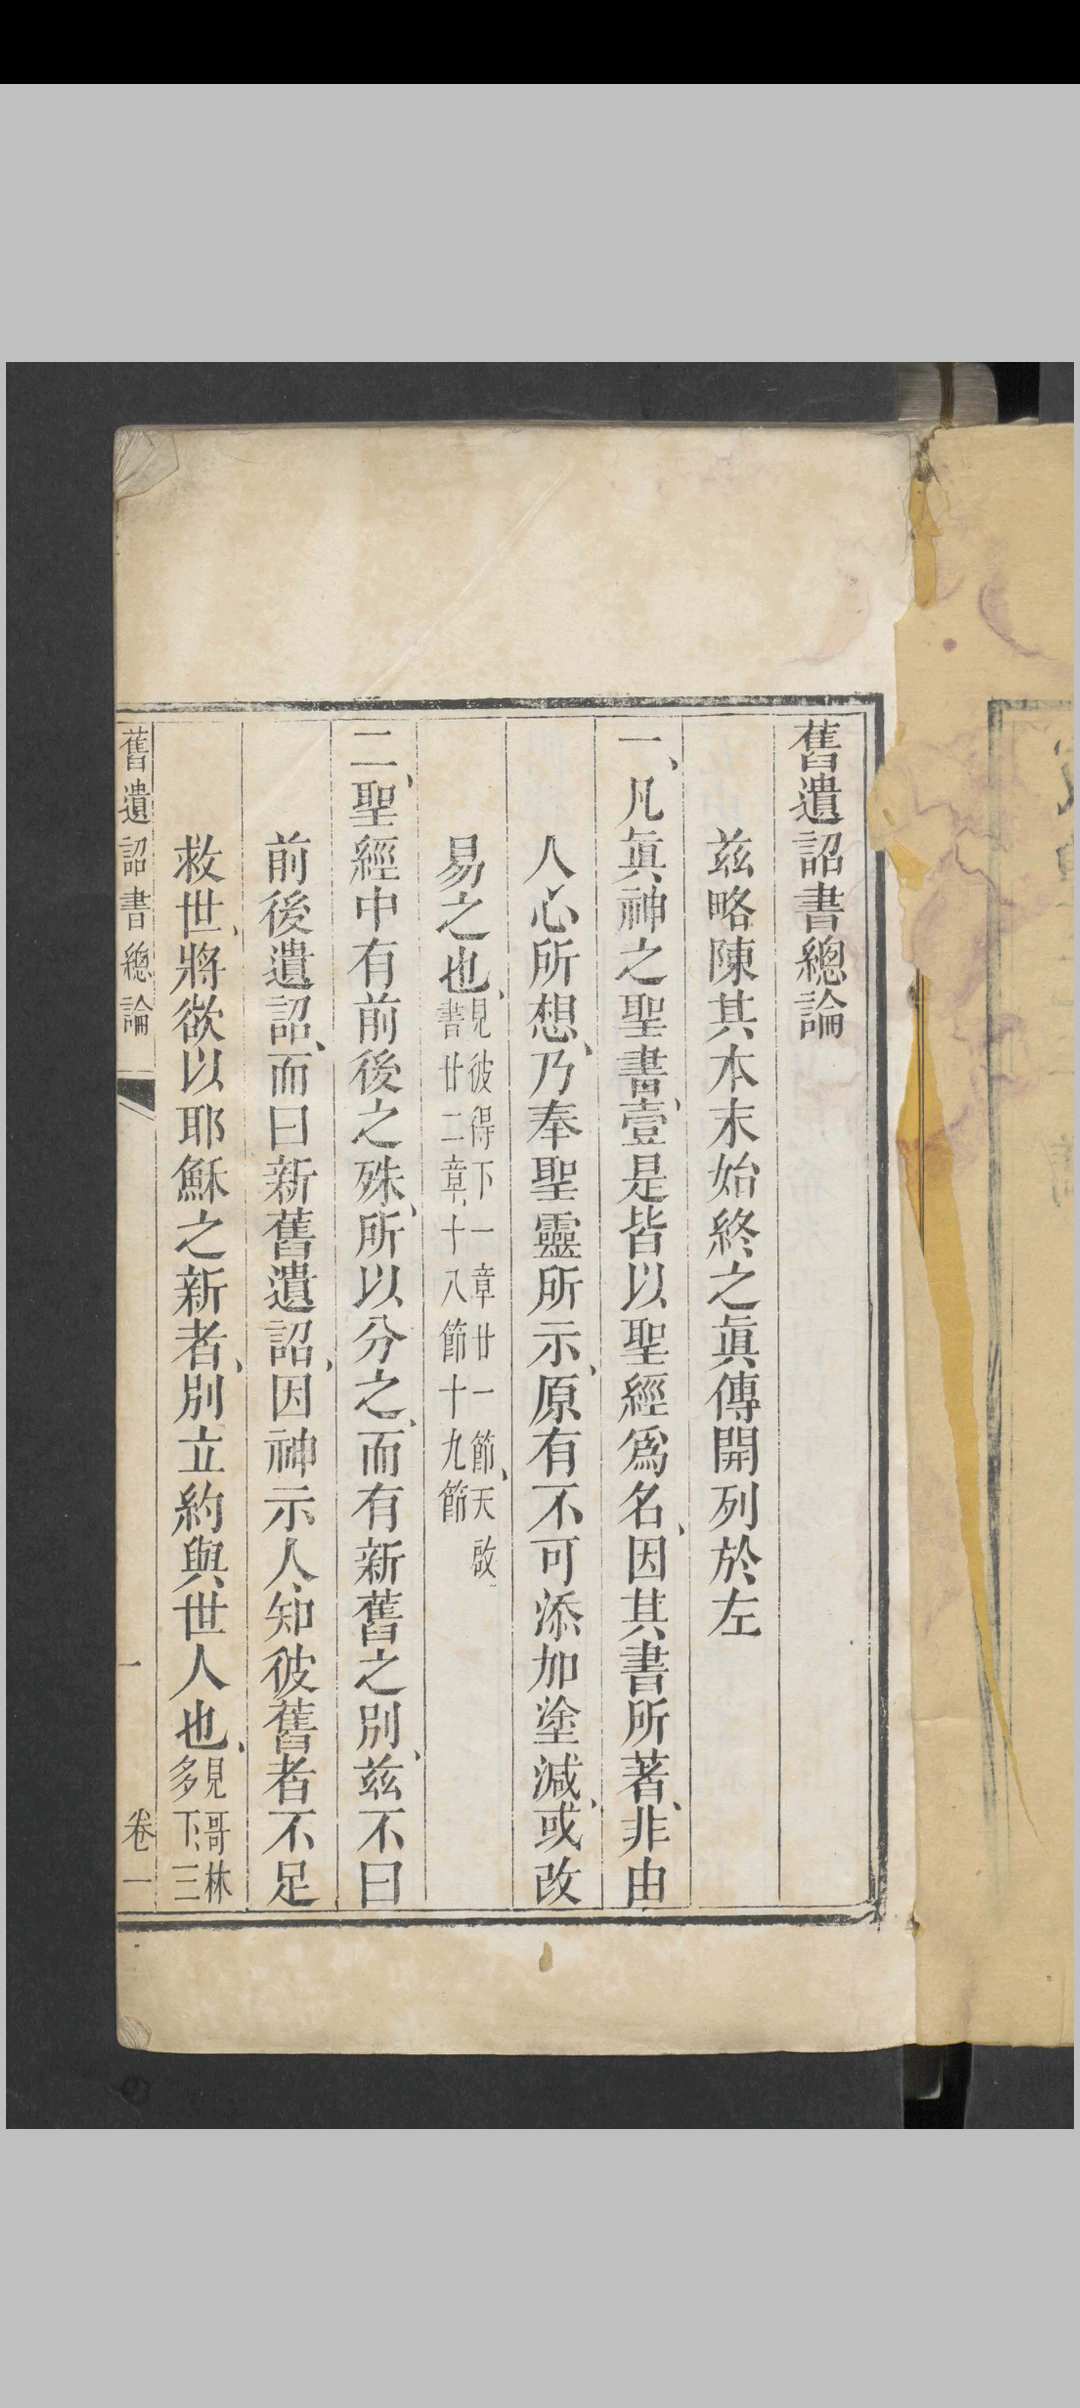 舊遺詔書總論
茲略陳其本末始終之眞傳開列於左
一、凡眞神之聖書、壹是皆以聖經爲名、因其書所著、非由
人心所想、乃奉聖靈所示、原有不可添加塗減、或改
易之也、見彼得下一章廿一節、天啟
書廿二章、十八節十九節
二、聖經中有前後之殊、所以分之、而有新舊之別、茲不曰
前後遺詔、而曰新舊遺詔、因神示人知彼舊者不足
救世、將欲以耶穌之新者、別立約與世人也、見哥林
多下、三
舊遺詔書總論 一 卷一